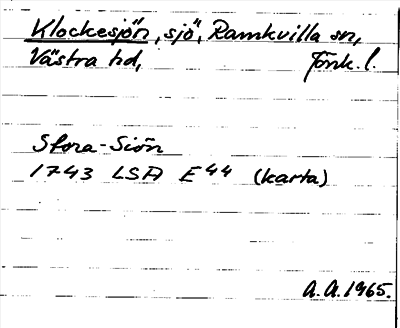 Klockesjön, sjö, Ramkvilla sn,
Västra hd, Jönk. l.
Stora-Siön
1743 LSA E44 (karta)
A.A. 1965.